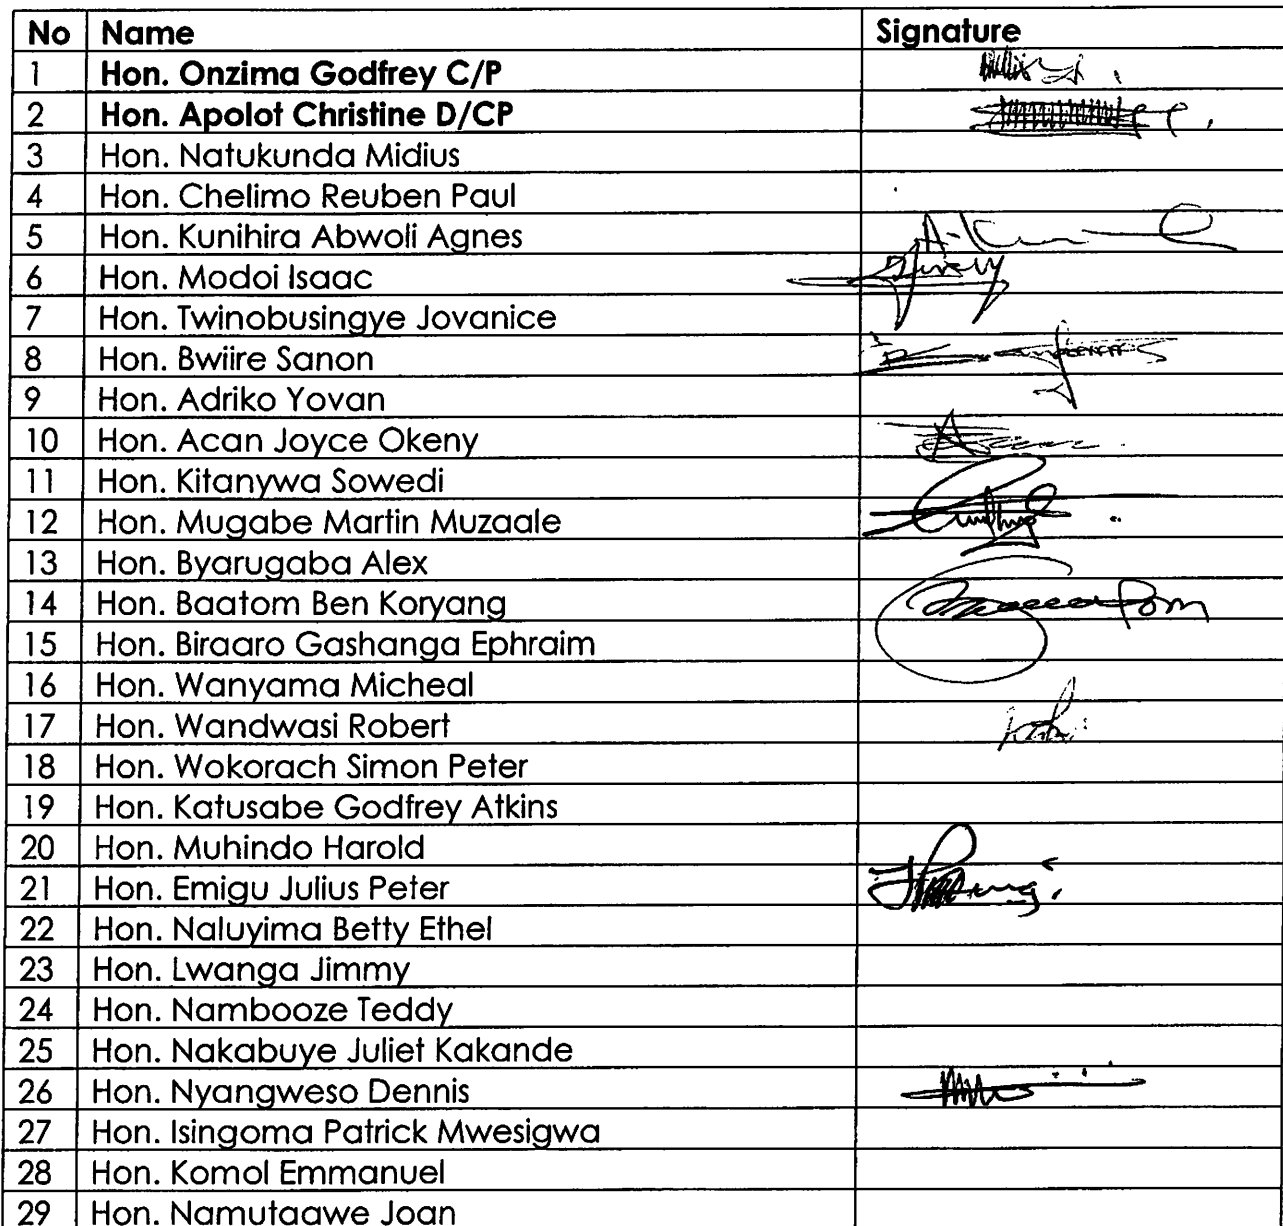 No Name Signature
1 Hon. Onzima Godfrey C/P
2 Hon. Apolot Christine D/CP
3 Hon. Natukunda Midius
4 Hon. Chelimo Reuben Paul
5 Hon. Kunihira Abwoli Agnes
6 Hon. Modoi Isaac
7 Hon. Twinobusingye Jovanice
8 Hon. Bwiire Sanon
9 Hon. Adriko Yovan
10 Hon. Acan Joyce Okeny
11 Hon. Kitanywa Sowedi
12 Hon. Mugabe Martin Muzaale
13 Hon. Byarugaba Alex
14 Hon. Baatom Ben Koryang
15 Hon. Biraaro Gashanga Ephraim
16 Hon. Wanyama Micheal
17 Hon. Wandwasi Robert
18 Hon. Wokorach Simon Peter
19 Hon. Katusabe Godfrey Atkins
20 Hon. Muhindo Harold
21 Hon. Emigu Julius Peter
22 Hon. Naluyima Betty Ethel
23 Hon. Lwanga Jimmy
24 Hon. Nambooze Teddy
25 Hon. Nakabuye Juliet Kakande
26 Hon. Nyangweso Dennis
27 Hon. Isingoma Patrick Mwesigwa
28 Hon. Komol Emmanuel
29 Hon. Namutaawe Joan